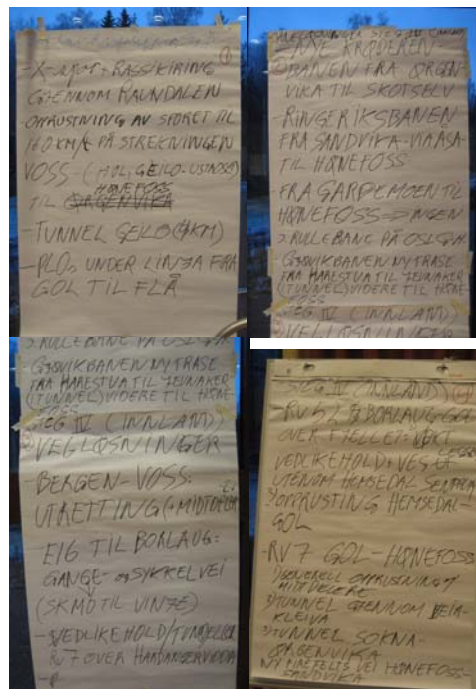 GJENNOM RAUNDALEN
-OPPRUSTNING AV SPORET TIL
PÅ STREKNINGEN
VOSS-(HOL, GEILO-USTAOSET)
HØNEFOSS
TIL
-TUNNEL GEILO
UNDER LINJA FRA
GOL TIL FLÅ
-NYE KRØDEREN-
BANEN FRA ØRGEN-
VIKA TIL SKOTSELV
-RINGERIKSBANEN
FRA SANDVIKA-
TIL HØNEFOSS
-FRA GARDEMOEN TIL
HØNEFOSS => INGEN
3. RULLEBANE PÅ OSL.GA.
-GJØVIKBANEN NY TRASE
FRA HARESTUA TIL JEVNAKER
(TUNNEL) VIDERE TIL HØNE-
FOSS
STEG IV (INNLAND)
3. RULLEBANE PÅ OSL.GA.
-GJØVIKBANEN NY TRASE
FRA HARESTUA TIL JEVNAKER
(TUNNEL) VIDERE TIL HØNE-
FOSS
STEG IV (INNLAND)
VEGLØSNINGER
-BERGEN-VOSS:
UTRETTING (+MIDTDELER
-E16 TIL BORLAUG:
GANGE- og SYKKELVEI
(SKMO TIL VINJE)
-VEDLIKEHOLD/TUNNELER
RV 7 OVER HARDANGERVIDDA
STEG IV (INNLAND)
RV 52 BORLAUG-GOL
OVER FJELLET:
VEDLIKEHOLD+
UTENOM HEMSEDAL SENTRUM
OPPRUSTING HEMSEDAL-
GOL
-RV 7 GOL-HØNEFOSS
1) GENERELL OPPRUSTNING M/
MIDTDELERE
2) TUNNEL GJENNOM BEIA-
KLEIVA
3) TUNNEL SOKNA-
ØRGENVIKA
VEI HØNEFOSS-
SANDVIKA